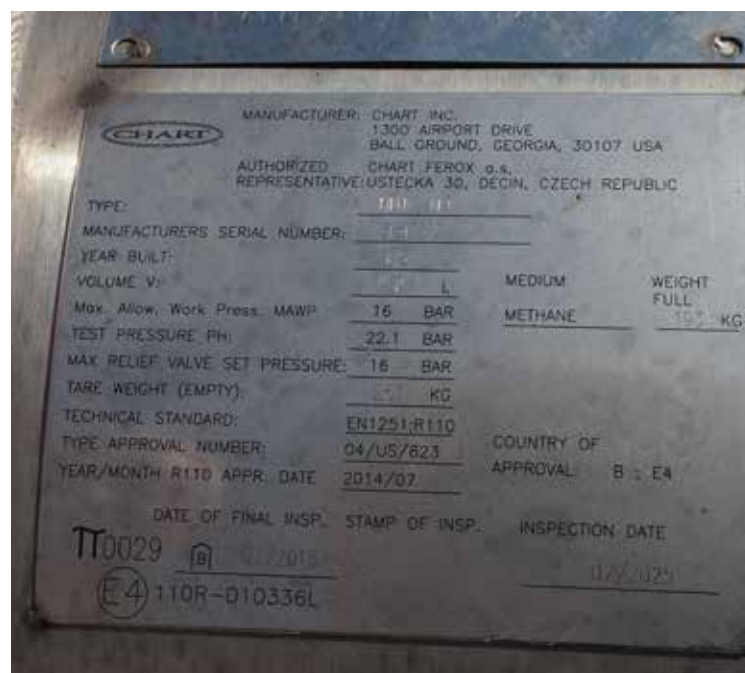 CHART
MANUFACTURER: CHART INC.
1300 AIRPORT DRIVE
BALL GROUND, GEORGIA, 30107 USA
AUTHORIZED REPRESENTATIVE: CHART FEROX a.s,
USTECKA 30, DECIN, CZECH REPUBLIC
TYPE:
MANUFACTURERS SERIAL NUMBER:
YEAR BUILT:
VOLUME V: L
MEDIUM
WEIGHT FULL
Max. Allow. Work Press. MAWP 16 BAR
METHANE
KG
TEST PRESSURE PH: 22.1 BAR
MAX RELIEF VALVE SET PRESSURE: 16 BAR
TARE WEIGHT (EMPTY): KG
TECHNICAL STANDARD: EN1251;R110
TYPE APPROVAL NUMBER: 04/US/623
COUNTRY OF APPROVAL: B ; E4
YEAR/MONTH R110 APPR. DATE 2014/07
DATE OF FINAL INSP. STAMP OF INSP. INSPECTION DATE
π0029 B
E4 110R-010336L